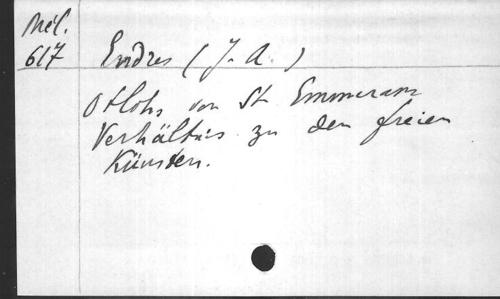 Mél.
617 Endres (J. A.)
Otlohs von St Emmeram
Verhältnis zu den freien
Künsten.